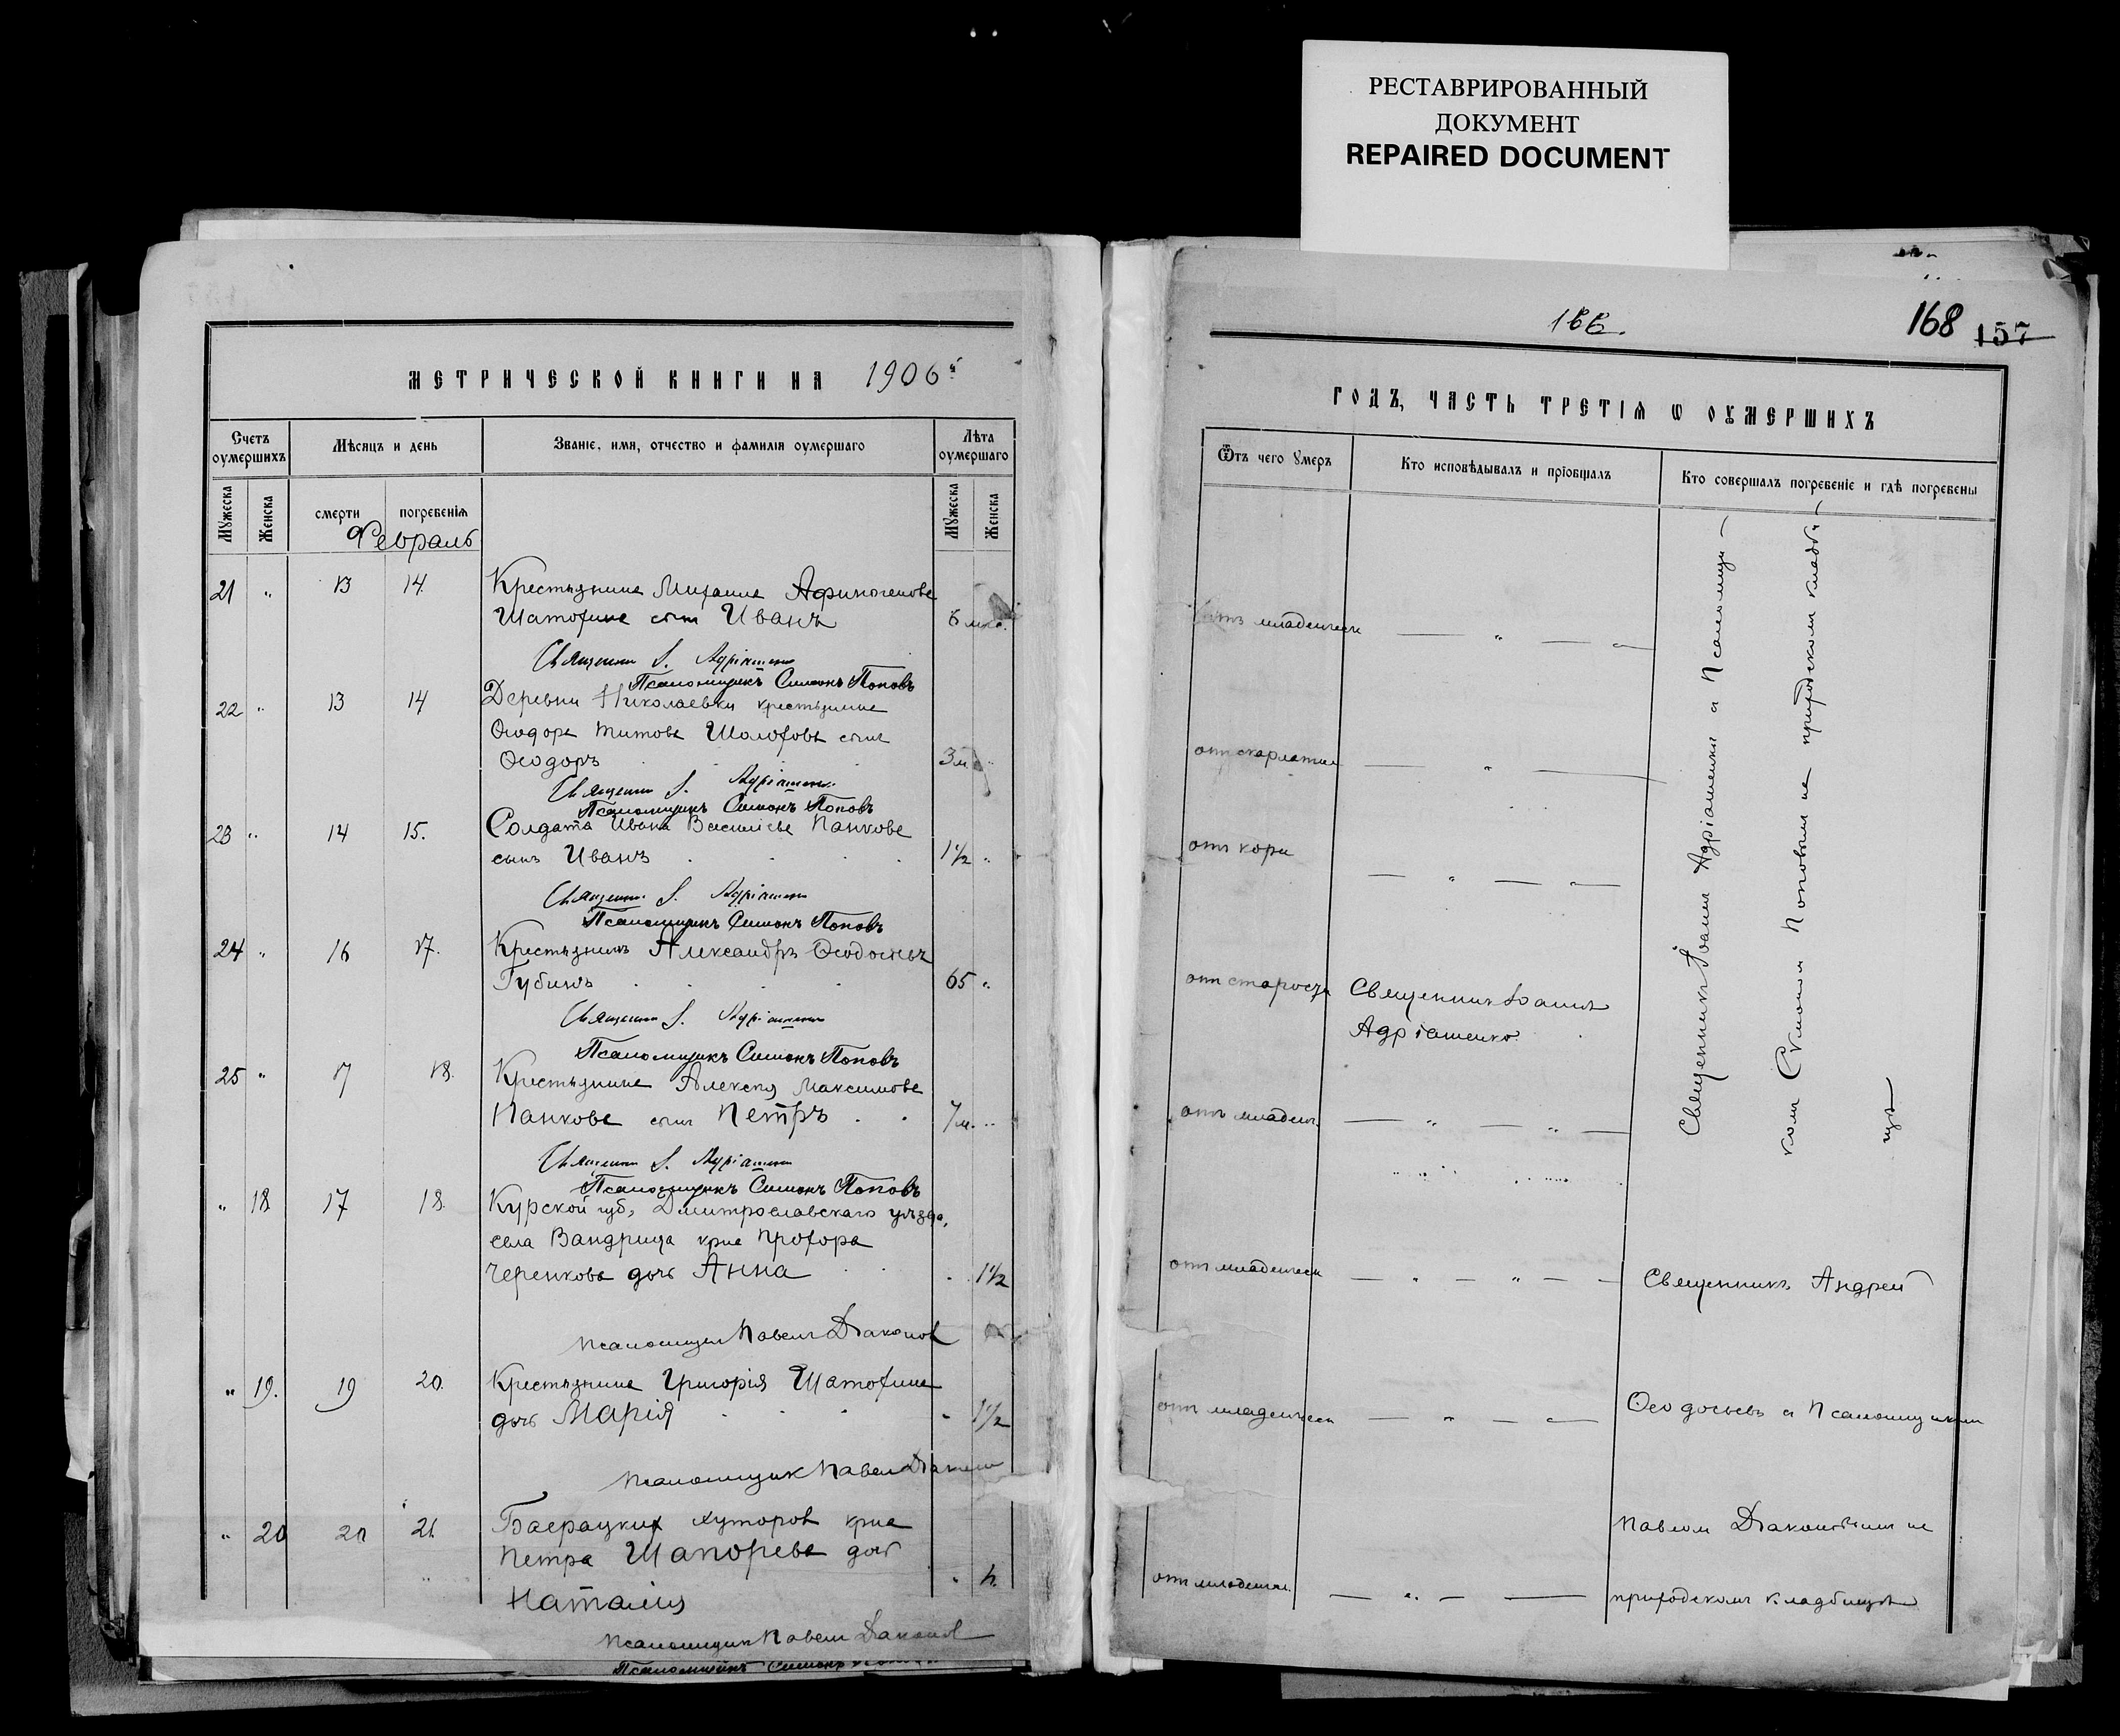 РЕСТАВРИРОВАННЫЙ
ДОКУМЕНТ
REPAIRED DOCUMENT
МЕТРИЧЕСКОЙ КНИГИ НА 1906й
Счетъ оумершихъ
Мѣсяцъ и день
Званіе, имя, отчество и фамилія оумершаго
Лѣта оумершаго
Мужеска
Женска
смерти
погребенія
Мужеска
Женска
Февраль
21 " 13 14. Крестьянина Михаила Афиногенова
Шатохина сынъ Иванъ 6 м.
Священник І. Адріашенко
Псаломщикъ Симонъ Поповъ
22 " 13 14 Деревни Николаевки крестьянина
Ѳеодора Титова Шолохова сынъ
Ѳеодоръ 3 м
Священник І. Адріашенко
Псаломщикъ Симонъ Поповъ
23 " 14 15. Солдата Ивана Васильева Панкова
сынъ Иванъ 1½ "
Священник І. Адріашенко
Псаломщикъ Симонъ Поповъ
24 " 16 17. Крестьянинъ Александръ Ѳеодосьевъ
Губинъ 65 "
Священник І. Адріашенко
Псаломщикъ Симонъ Поповъ
25 " 17 18. Крестьянина Алексія Максимова
Панкова сынъ Петръ 7 м. "
Священник І. Адріашенко
Псаломщикъ Симонъ Поповъ
" 18 17 18. Курской губ, Дмитрославскаго уѣзда,
села крна Прохора
Черенкова дочь Анна 1½
Псаломщик Павелъ Діаконов
" 19. 19 20. Крестьянина Григорія Шатохина
дочь Марія " 1½
Псаломщик Павелъ Діаконов
" 20 20 21. Баерацких хуторов крна
Петра Шапорева дочь
Наталия
Псаломщик Павелъ Діаконов
Псаломщикъ Симонъ
166.
168 157
ГОДЪ, ЧАСТЬ ТРЕТІЯ Ѡ ОУМЕРШИХЪ
Ѿтъ чего умеръ
Кто исповѣдывалъ и пріобщалъ
Кто совершалъ погребеніе и гдѣ погребены
отъ младенческ
от скарлатин
отъ кори
от старости Священник Іоаннъ
Адріашенко
отъ младенч.
отъ младенческ
отъ младенческ
отъ младенч.
Священникъ Іоаннъ Адріашенко и Псаломщи-
комъ Симономъ Поповым на приходском кладби-
щѣ
Священникъ Андрей
Ѳеодосьевъ и Псаломщиком
Павлом Діаконовым на
приходскомъ кладбищѣ